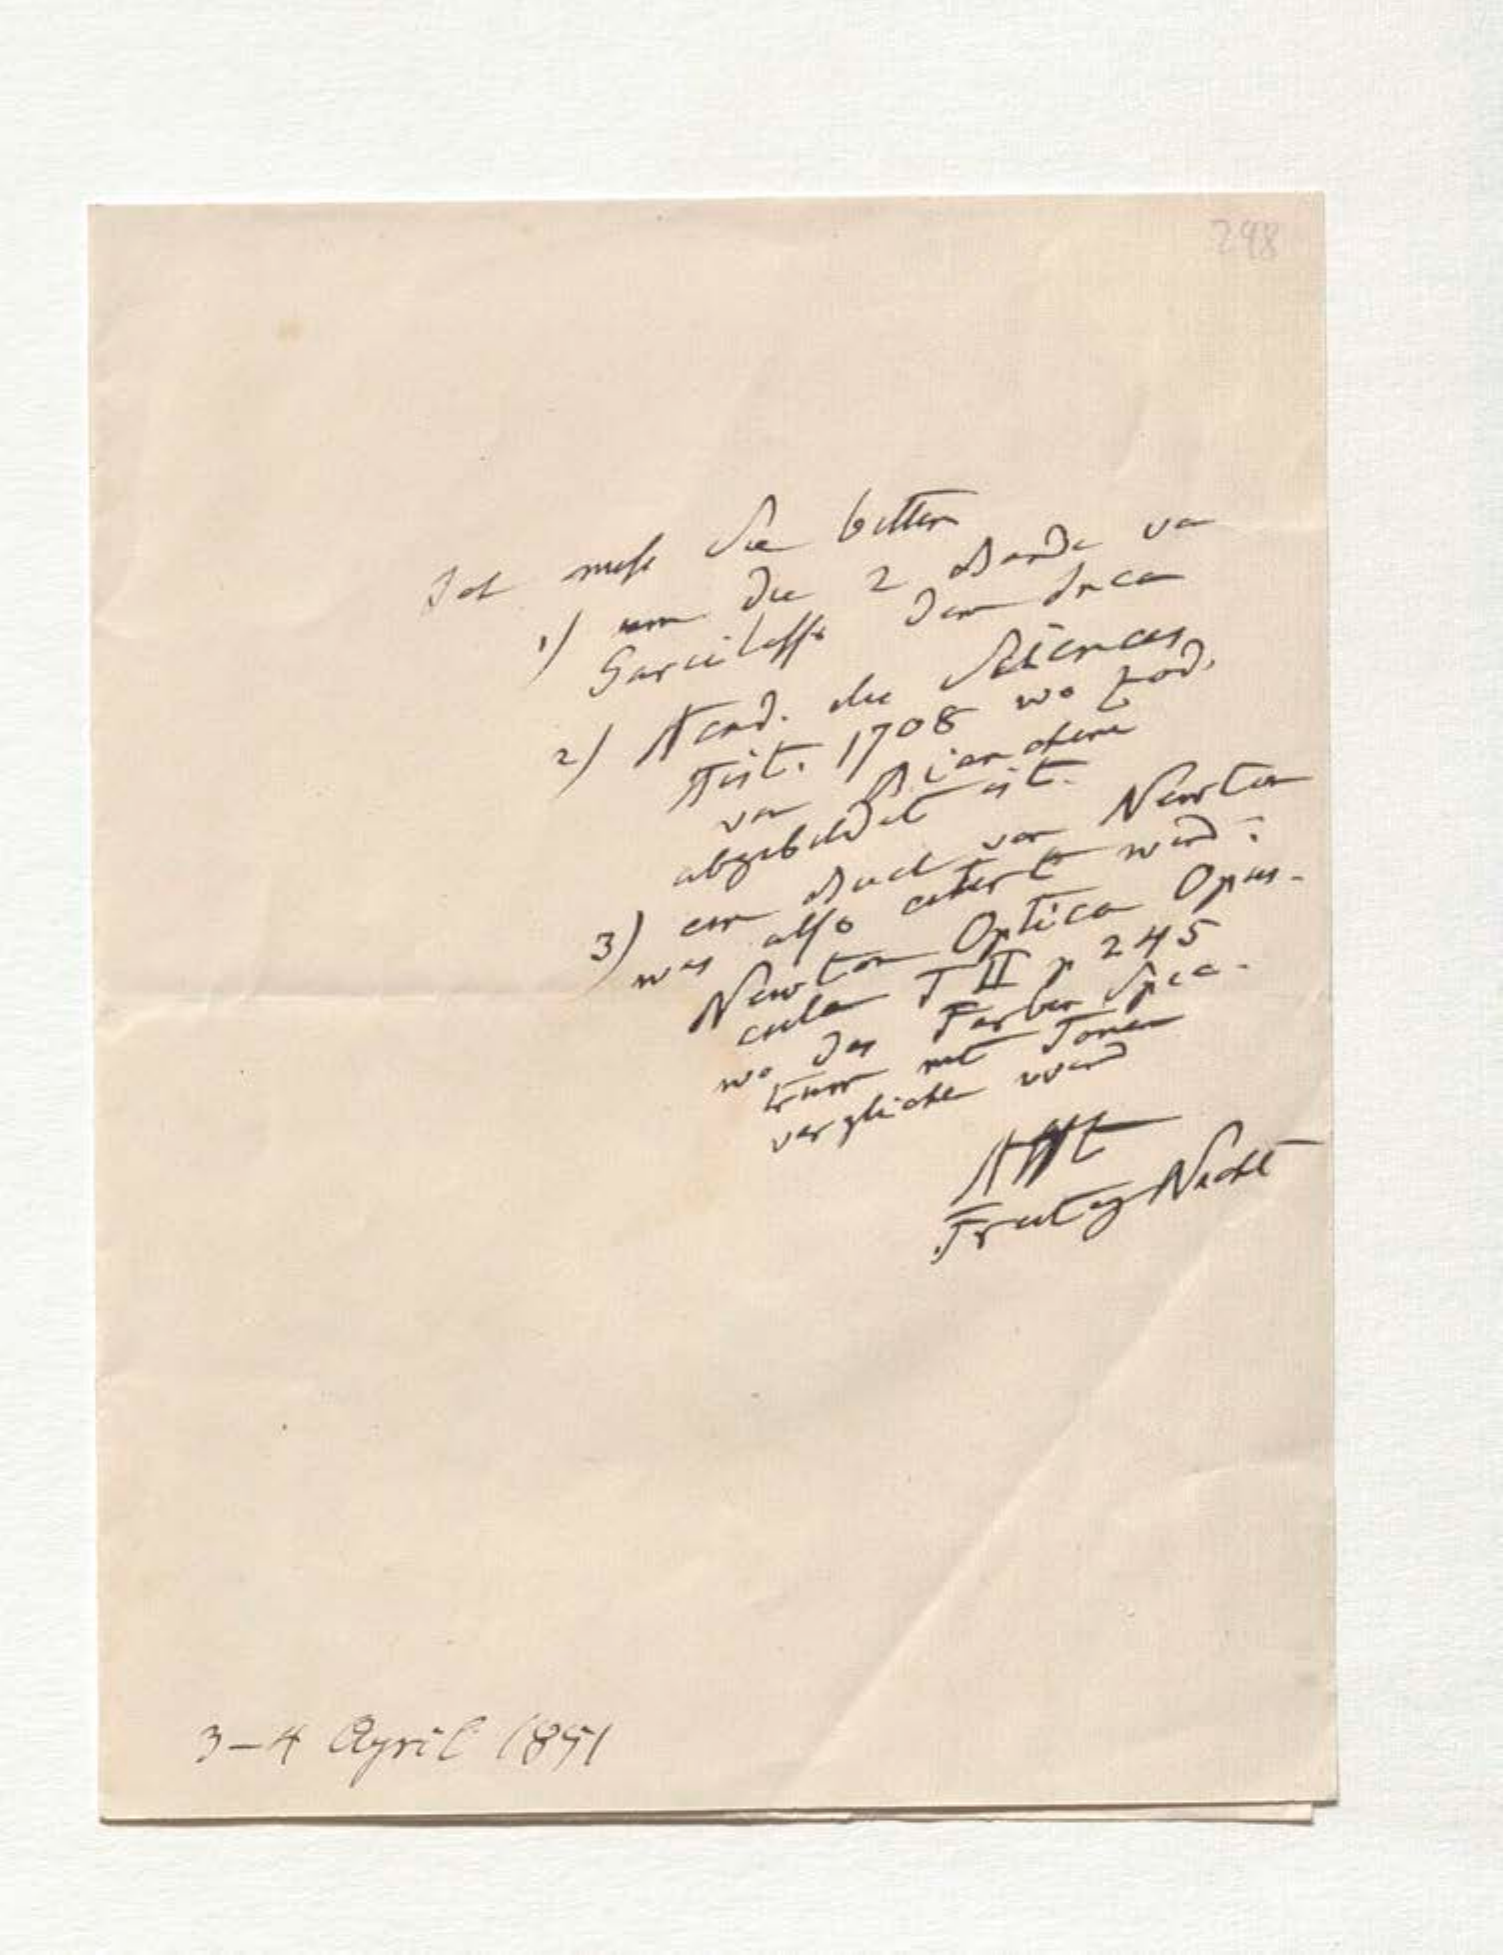 298
Ich muß Sie bitten
1) um die 2 Bände von
Garcilasso den Inca
2) Acad. des Sciences
Hist. 1708 wo Zod.
von Bianchini
abgebildet ist.
3) ein Buch von Newton
was also citirt wird:
Newton Optica Opus-
cula T II p 245
wo das Farben Spec-
trum mit Tönen
verglichen wird
AHt
Freitag Nacht
3–4 April 1851